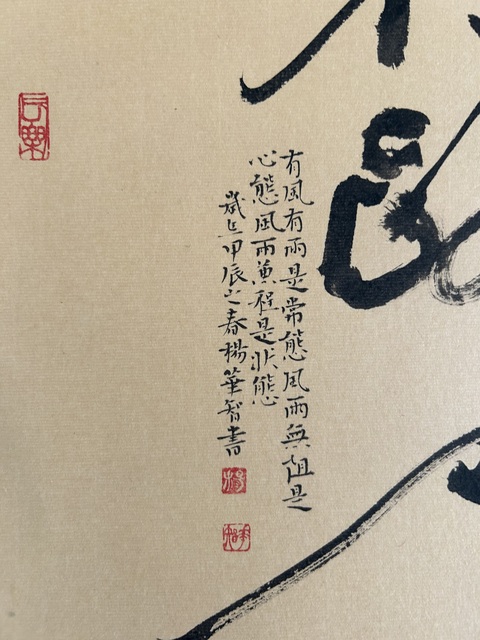 有風有雨是常態風雨無阻是
心態風雨兼程是狀態
歲在甲辰之春楊華智書